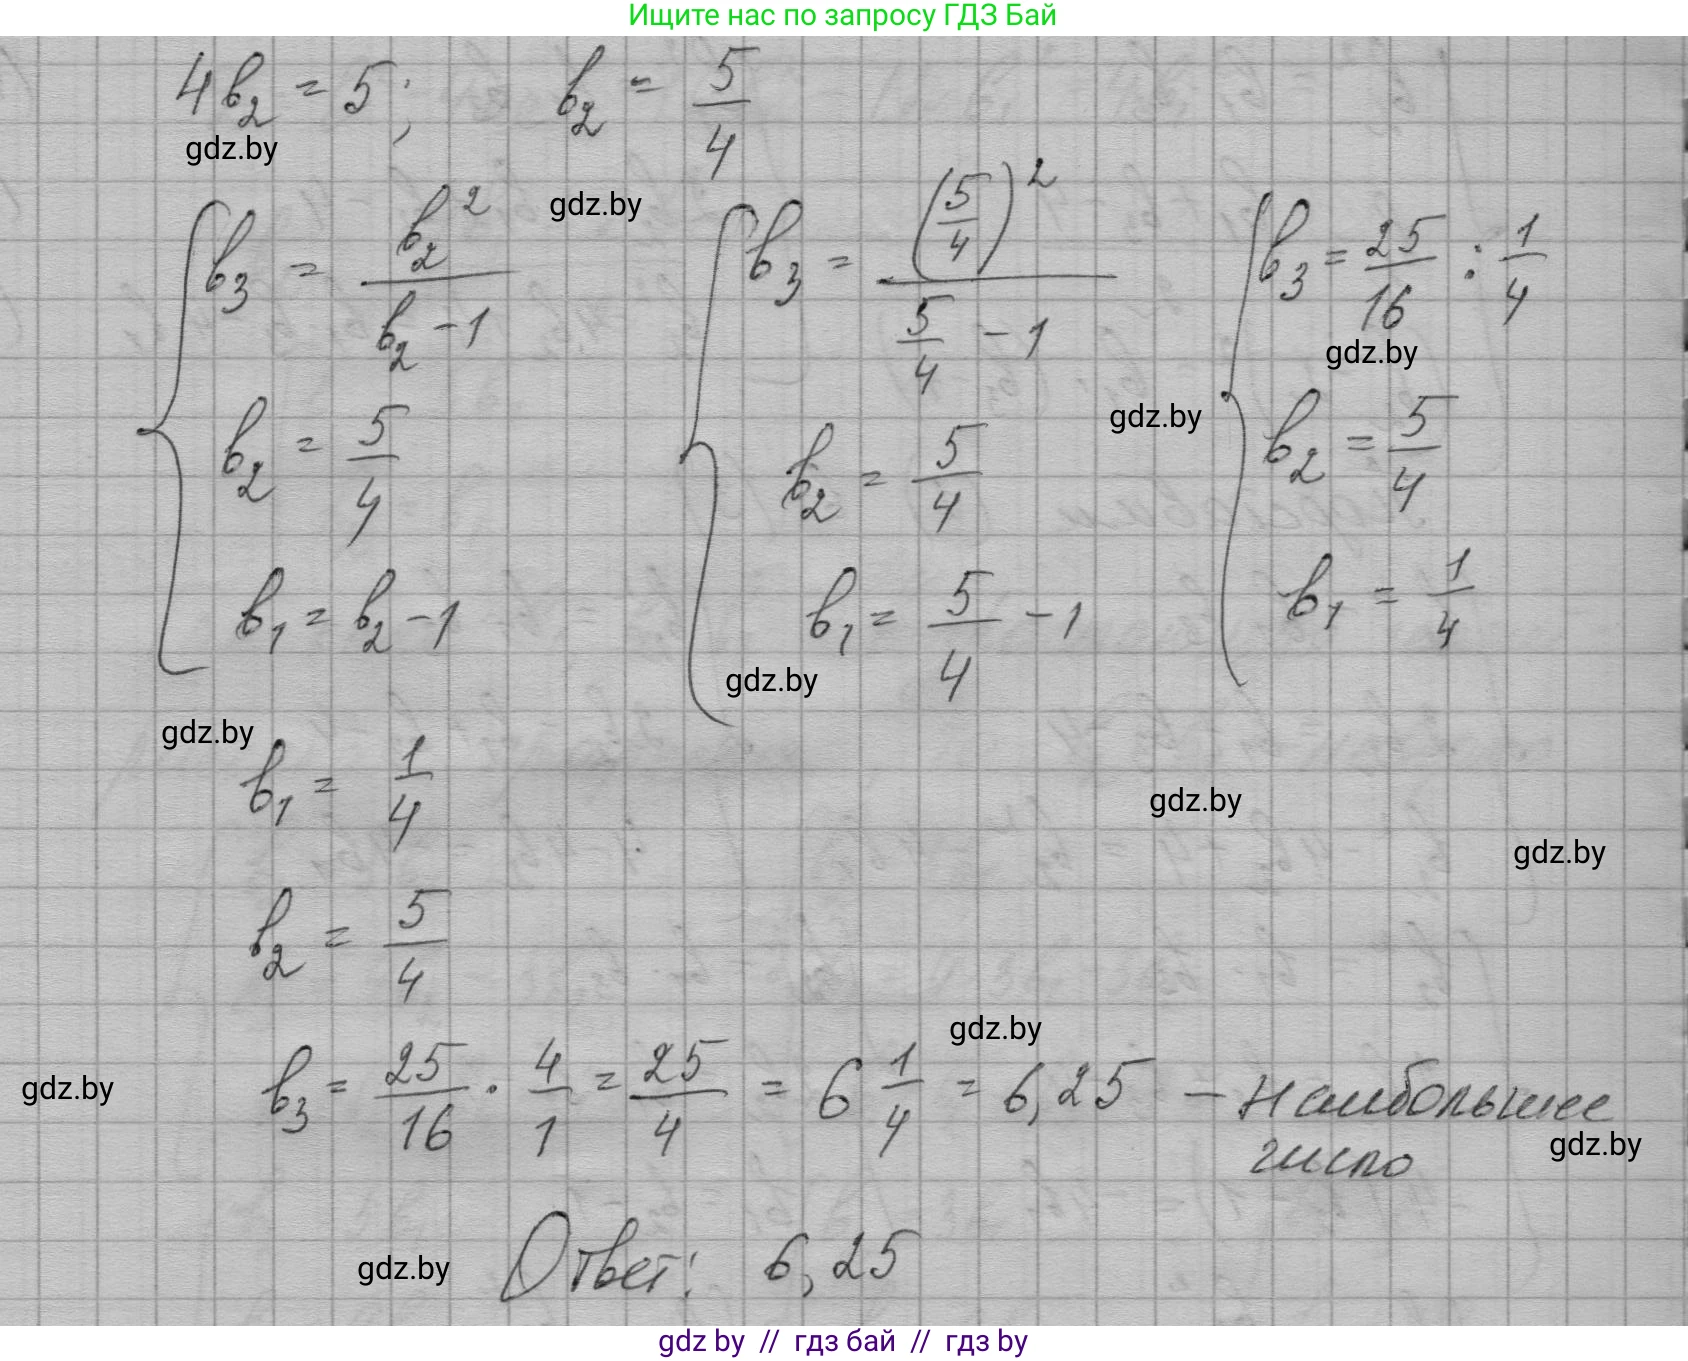 Ищите нас по запросу ГДЗ Бай
4b₂ = 5; b₂ = 5/4
gdz.by
gdz.by
{ b₃ = b₂²/(b₂ - 1) { b₃ = (5/4)²/(5/4 - 1) { b₃ = 25/16 : 1/4
gdz.by
gdz.by
b₂ = 5/4 b₂ = 5/4 b₂ = 5/4
b₁ = b₂ - 1 b₁ = 5/4 - 1 b₁ = 1/4
gdz.by
gdz.by
b₁ = 1/4
gdz.by
gdz.by
b₂ = 5/4
gdz.by
gdz.by
b₃ = 25/16 · 4/1 = 25/4 = 6 1/4 = 6,25 — наибольшее
число
gdz.by
gdz.by
Ответ: 6,25
gdz by // гдз бай // гдз by